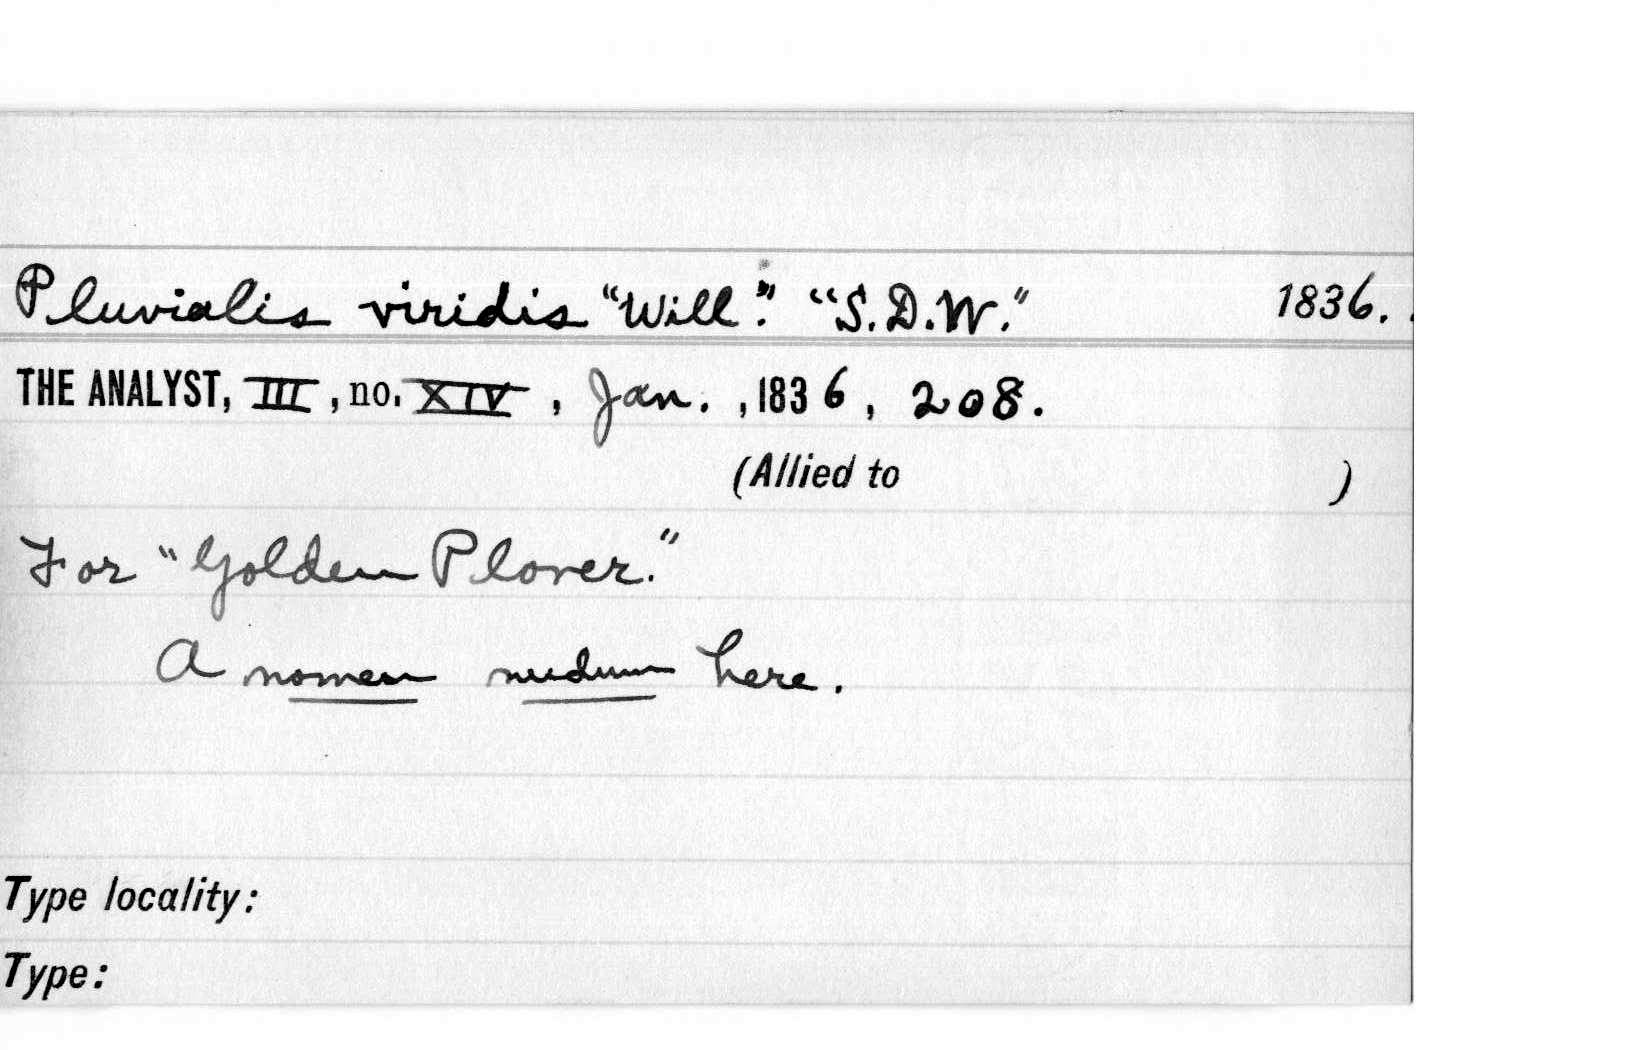 Pluvialis viridis "Will." "S.D.W." 1836.
THE ANALYST, III, no. XIV, Jan., 1836, 208.
(Allied to )
For "Golden Plover."
A nomen nudum here.
Type locality:
Type: